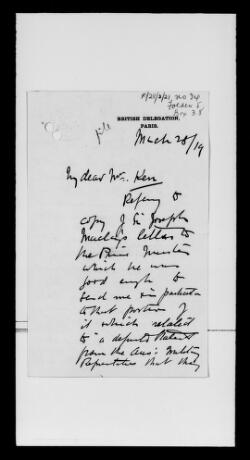 F/28/2/21, no 34
Folder 5
Box 38
file
BRITISH DELEGATION,
PARIS.
March 28/19
My dear Mr. Kerr
Refering to
copy of Sir Joseph
letter to
the Prime Minister
which he was
good enough to
send me & in particular
to that portion of
it which related
to "a definite statement
from the Aus: Military
Representatives that they